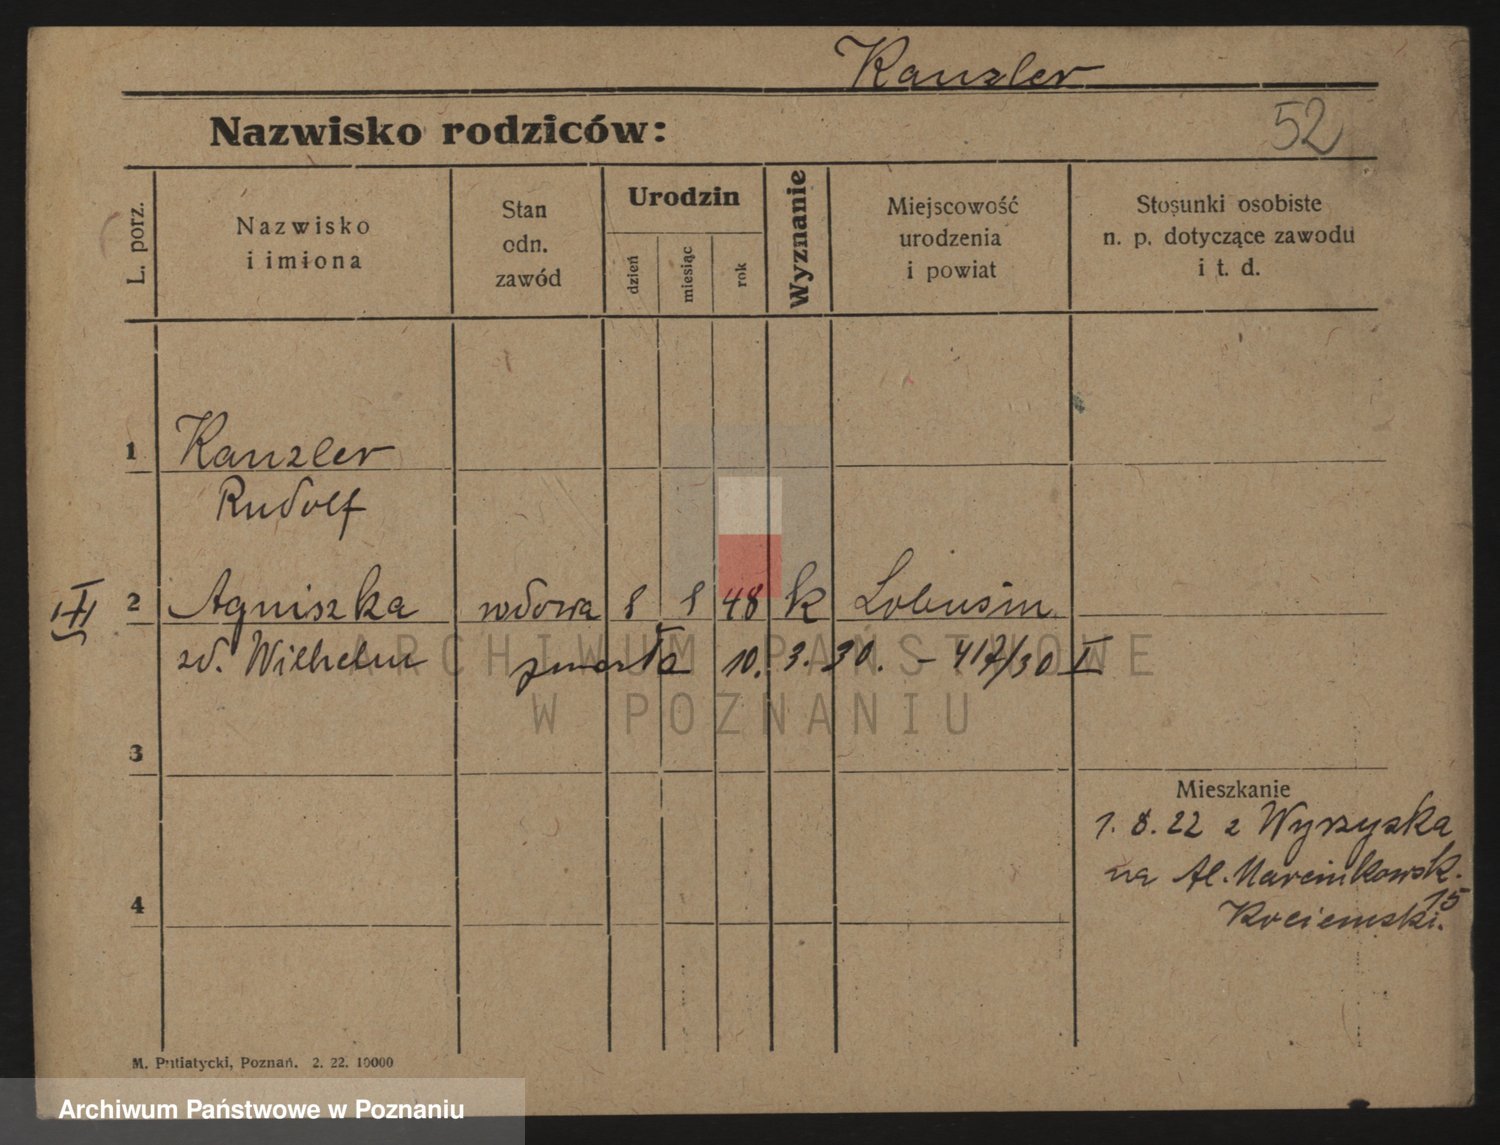 Kanzler
52
Nazwisko rodziców:
L. porz.
Nazwisko
i imiona
Stan
odn.
zawód
Urodzin
dzień
miesiąc
rok
Wyznanie
Miejscowość
urodzenia
i powiat
Stosunki osobiste
n. p. dotyczące zawodu
i t. d.
1 Kanzler
Rudolf
2 Agniszka wdowa 8 8 48 k
zd. Wilhelm zmarła 10. 3. 30. - 417/30 I
3
Mieszkanie
1. 8. 22 z Wyrzyska
na Al. Marcinkowsk.
15
4
M. Putiatycki, Poznań. 2. 22. 10000
ARCHIWUM PAŃSTWOWE
W POZNANIU
Archiwum Państwowe w Poznaniu